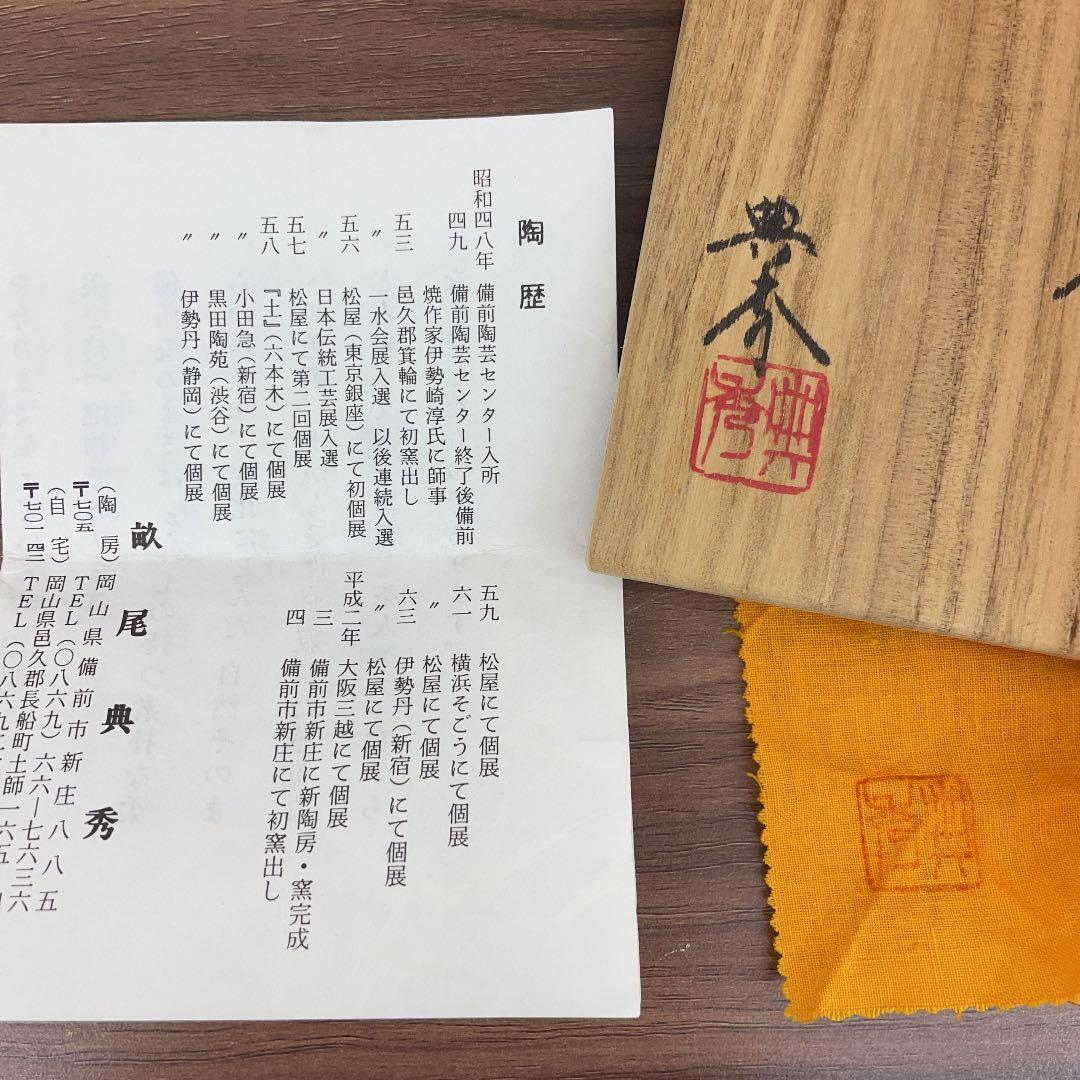 陶歴
昭和四八年 備前陶芸センター入所
四九 備前陶芸センター終了後備前
焼作家伊勢崎淳氏に師事
五三 邑久郡箕輪にて初窯出し
〃 一水会展入選 以後連続入選
五六 松屋(東京銀座)にて初個展
〃 日本伝統工芸展入選
五七 松屋にて第二回個展
五八 『土』(六本木)にて個展
〃 小田急(新宿)にて個展
〃 黒田陶苑(渋谷)にて個展
〃 伊勢丹(静岡)にて個展
五九 松屋にて個展
六一 横浜そごうにて個展
〃 松屋にて個展
六三 伊勢丹(新宿)にて個展
〃 松屋にて個展
平成二年 大阪三越にて個展
三 備前市新庄に新陶房・窯完成
四 備前市新庄にて初窯出し
畝尾典秀
(陶房)岡山県備前市新庄八八五
〒七〇五 TEL(〇八六九)六六―七六三六
(自宅)岡山県邑久郡長船町土師一六五
〒七〇一―四二 TEL(〇八六九二
典秀
典秀
典秀